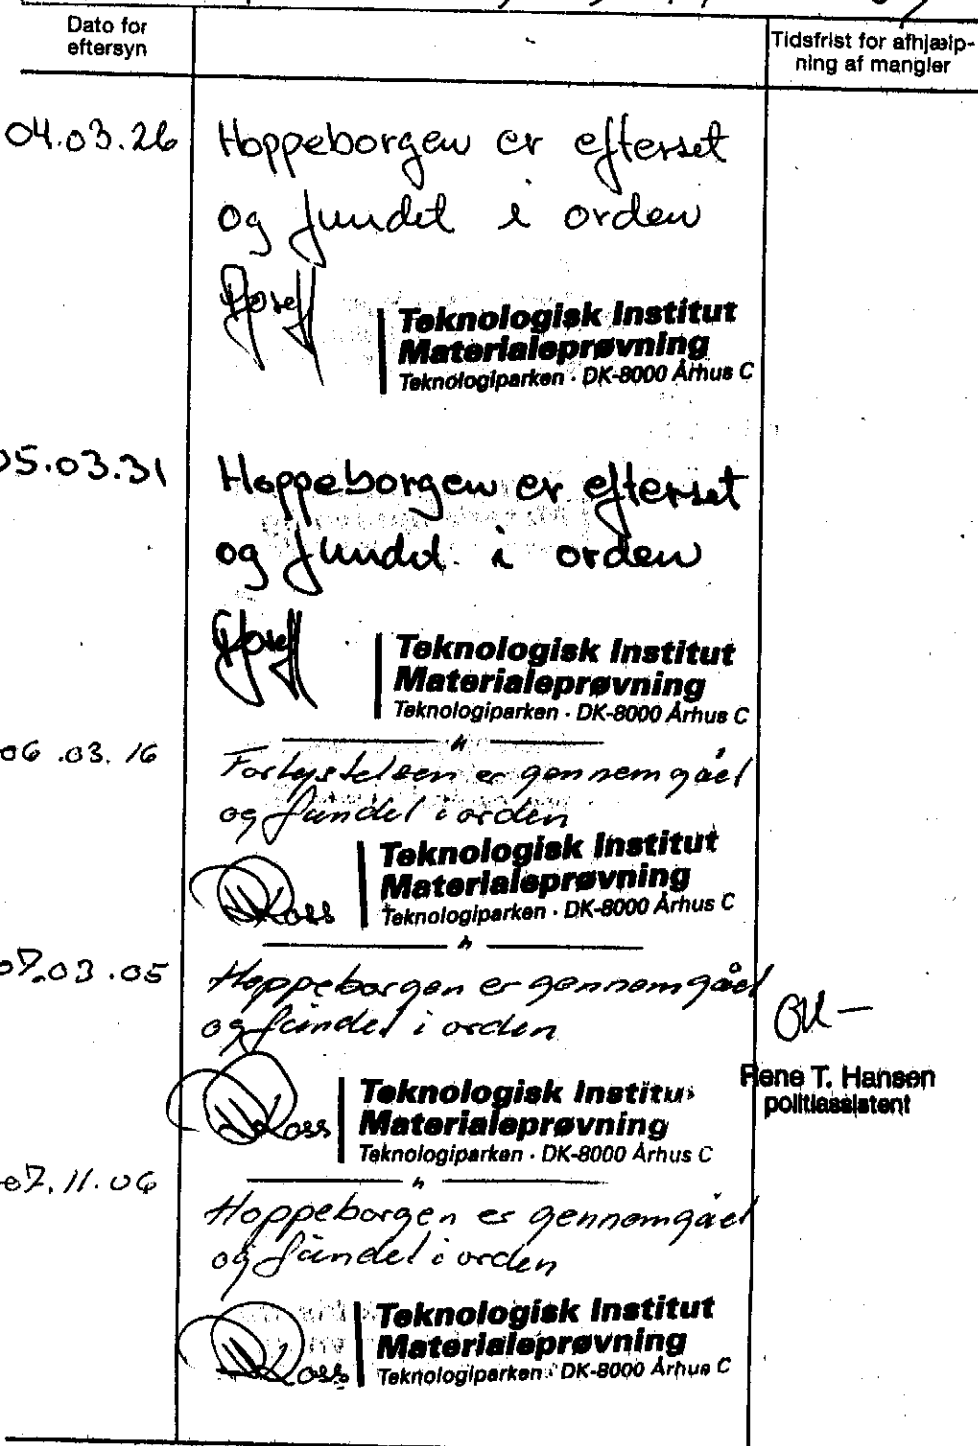 Dato for
eftersyn
Tidsfrist for afhjælp-
ning af mangler
04.03.26
Hoppeborgen er efterset
og fundet i orden
Teknologisk Institut
Materialeprøvning
Teknologiparken · DK-8000 Århus C
05.03.31
Hoppeborgen er efterset
og fundet i orden
Teknologisk Institut
Materialeprøvning
Teknologiparken · DK-8000 Århus C
06.03.16
Forlystelsen er gennemgået
og fundet i orden
Koss
Teknologisk Institut
Materialeprøvning
Teknologiparken · DK-8000 Århus C
07.03.05
Hoppeborgen er gennemgået
og fundet i orden
Koss
Teknologisk Institut
Materialeprøvning
Teknologiparken · DK-8000 Århus C
Rene T. Hansen
politiassistent
07.11.06
Hoppeborgen er gennemgået
og fundet i orden
Koss
Teknologisk Institut
Materialeprøvning
Teknologiparken · DK-8000 Århus C